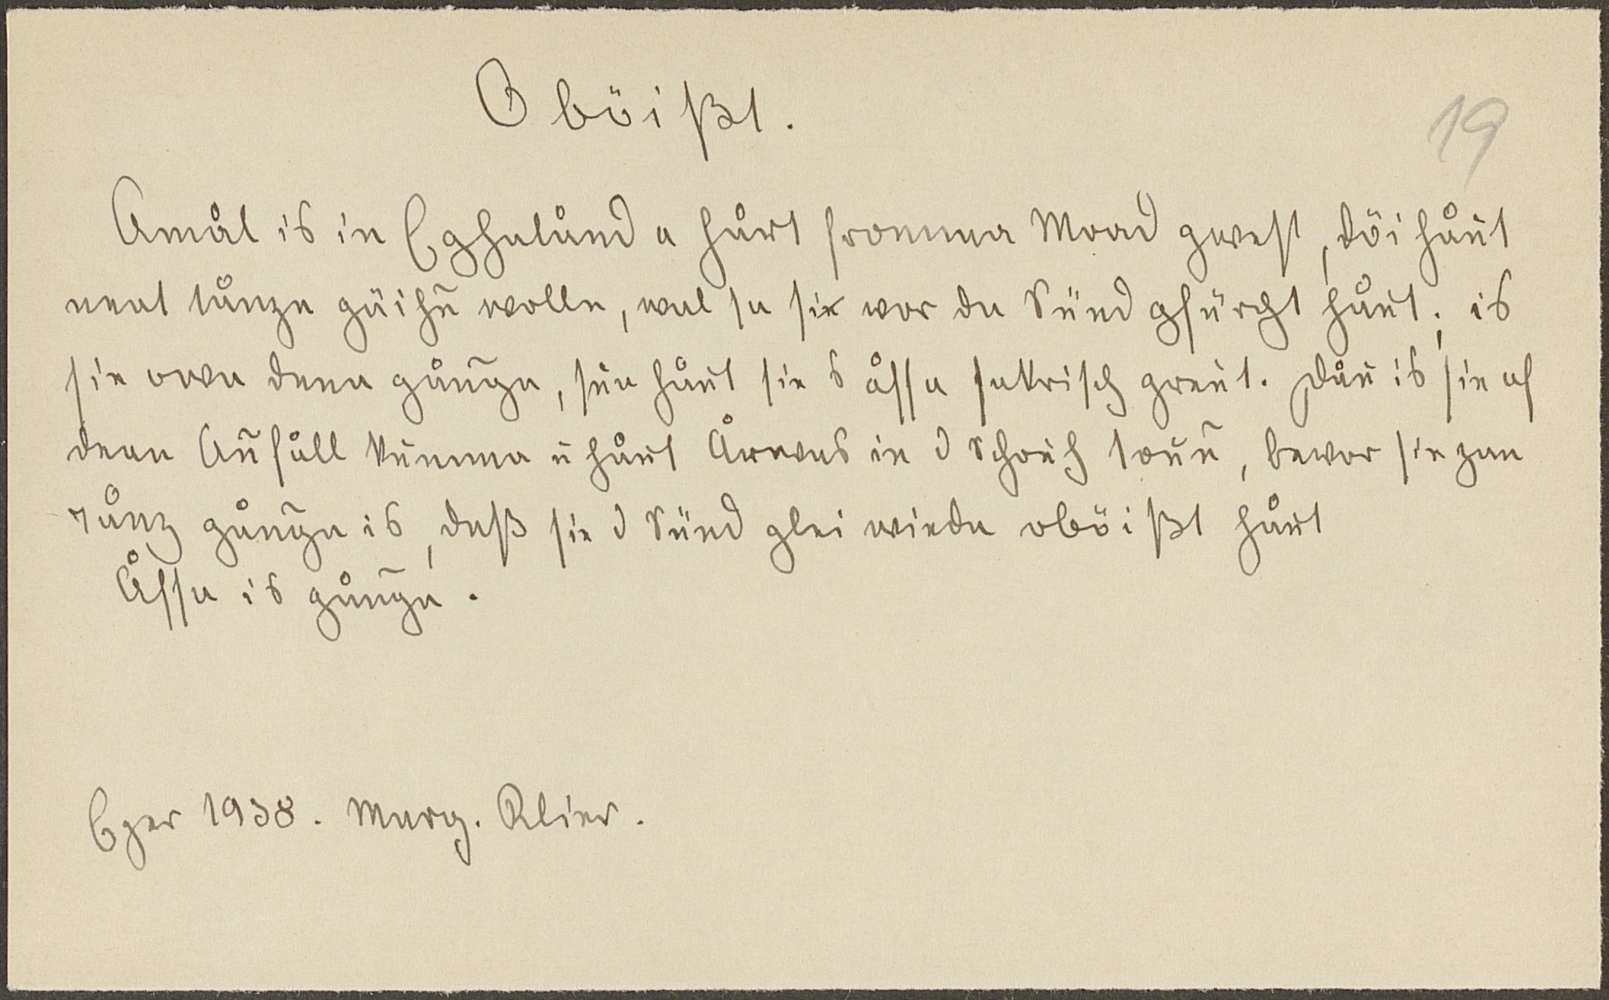 Oböißt.
19
Amål is in Eghalånd a hårt fromma Moad gwest, döi håut
neat tånzn gäihn wolln, wal sa sie vor da Sünd gfürcht håut; is
sie owa dena gånga, sua håut sie s åffa sakrisch greut. Dåu is sie af
dean Aufåll kumma u håut Årwas in d Schouh toun, bevor sie zan
Tånz gånga is, daß sie d Sünd glei wieda oböißt håut
Åffa is gånga.
Eger 1938. Marg. Klier.